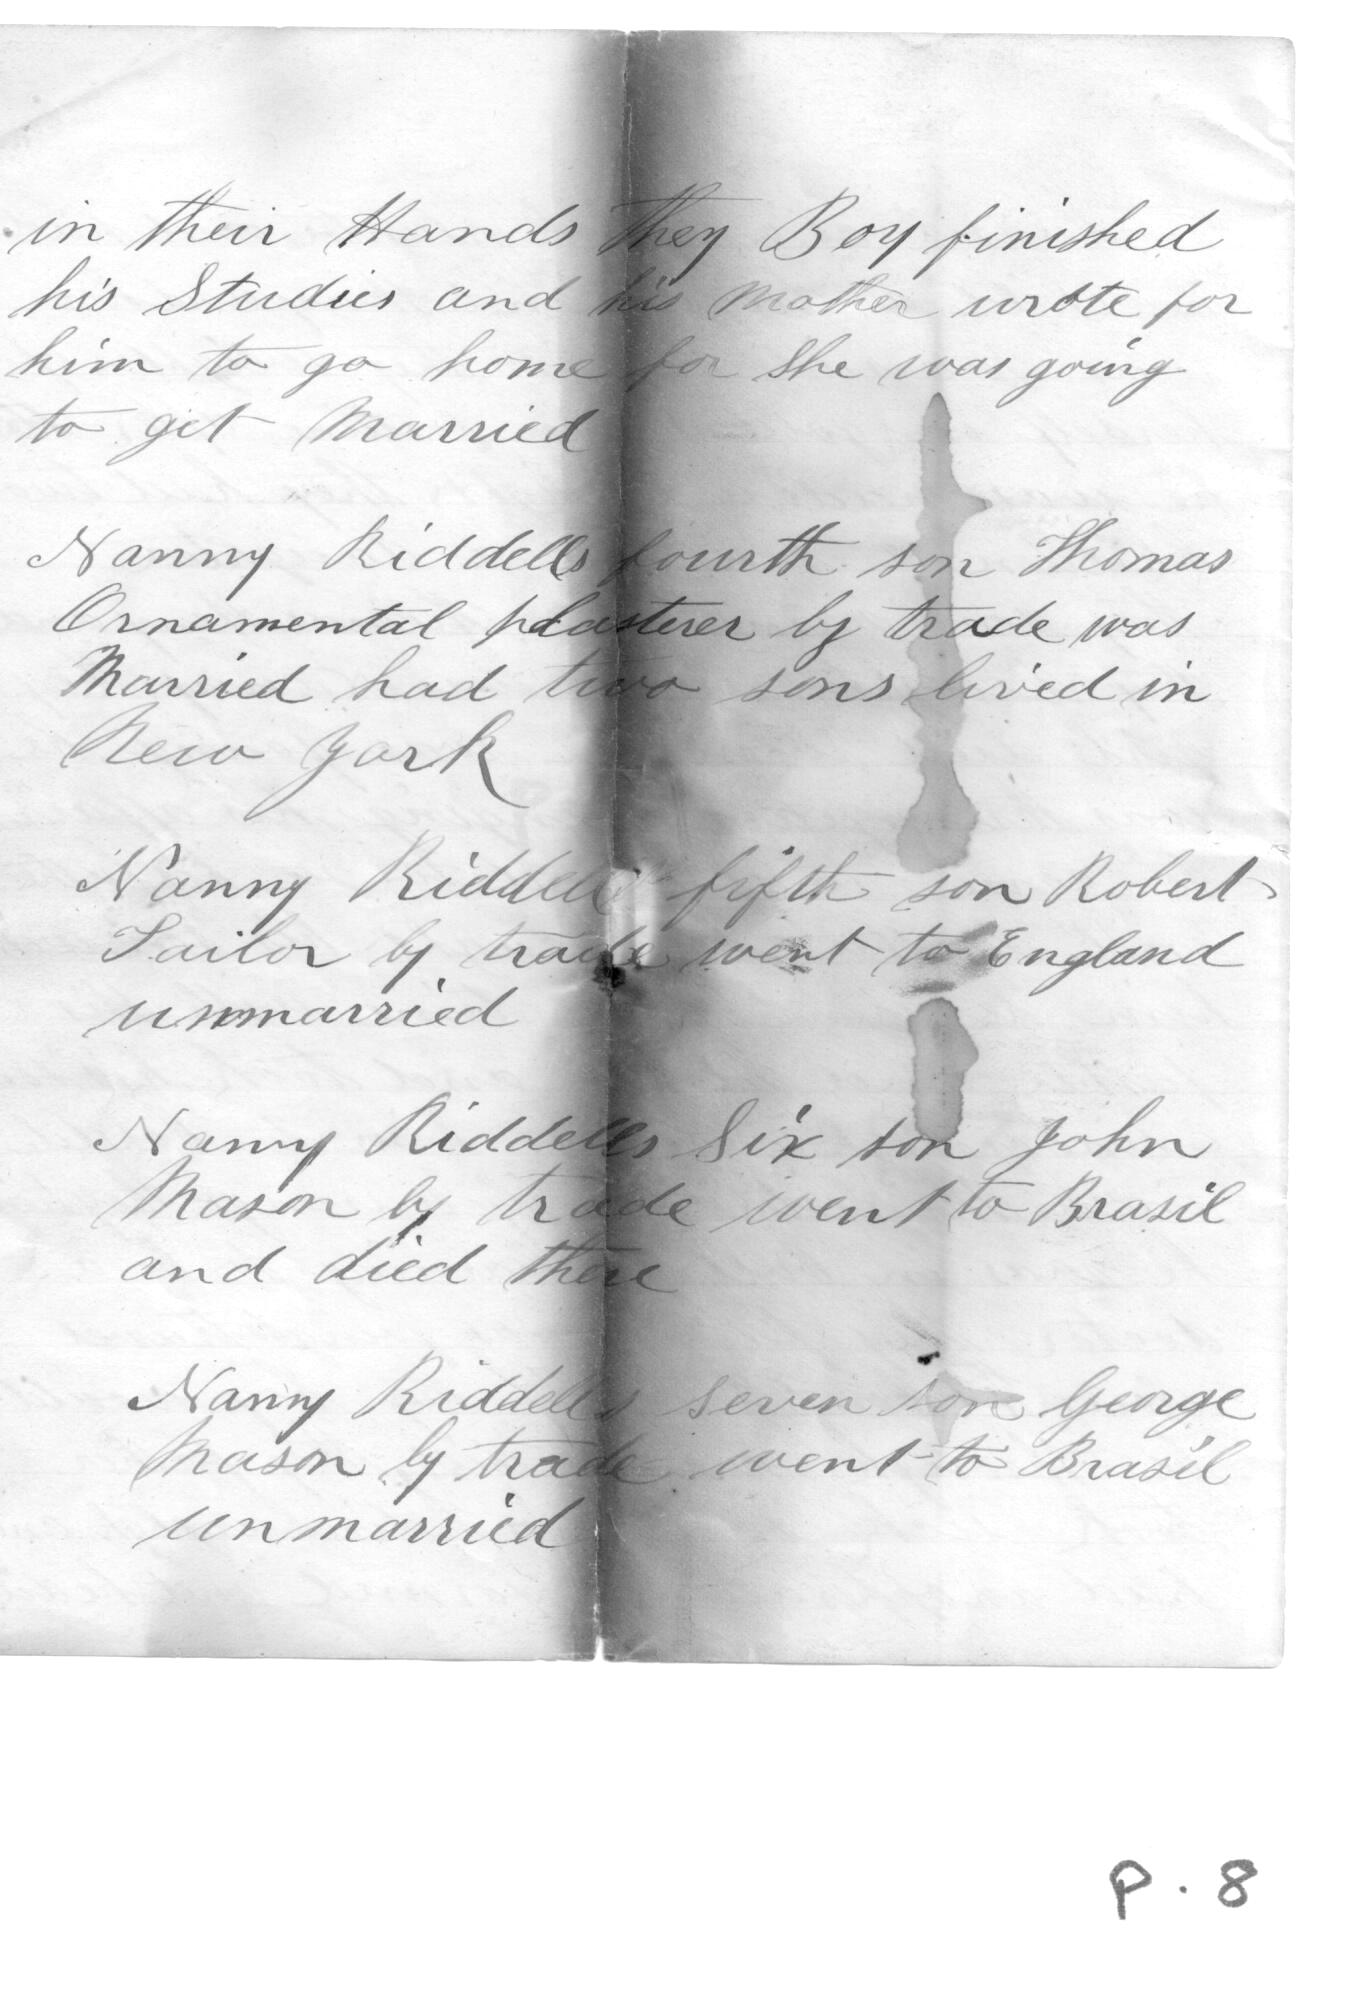 in their Hands they Boy finished
his Studies and his Mother wrote for
him to go home for She was going
to get Married
Nanny Riddells fourth son Thomas
Ornamental plasterer by trade was
Married had two sons lived in
New York
Nanny Riddells fifth son Robert
Tailor by trade went to England
unmarried
Nanny Riddells Six son John
Mason by trade went to Brasil
and died there
Nanny Riddells seven son George
Mason by trade went to Brasil
unmarried
P. 8